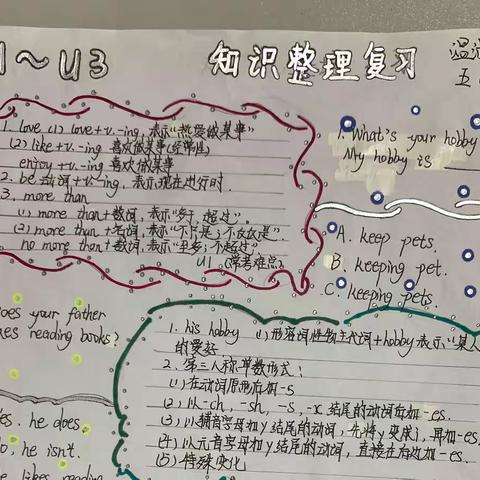 1～U3 知识整理复习
五
1. love (1) love+v.-ing, 表示“热爱做某事”
(2) like+v.-ing 喜欢做某事(经常性)
enjoy+v.-ing 喜欢做某事
2. be动词+v.-ing, 表示现在进行时.
3. more than
(1) more than+数词, 表示“多于, 超过”.
(2) more than+名词, 表示“不只是; 不仅仅是”.
no more than+数词, 表示“至多; 不超过”.
U1 (常考难点)
1. What's your hobby
My hobby is
A. keep pets.
B. keeping pet.
C. keeping pets.
oes your father
kes reading books?
es. he does.
o, he isn't.
e likes reading
1. his hobby (1) 形容词性物主代词+hobby表示“某人
的爱好
2. 第三人称单数形式:
(1) 在动词原形后加-s
(2) 以-ch, -sh, -s, -x结尾的动词后加-es.
(3) 以辅音字母加y结尾的动词, 先将y变成i, 再加-es.
(4) 以元音字母加y结尾的动词, 直接在后边加-es.
(5) 特殊变化